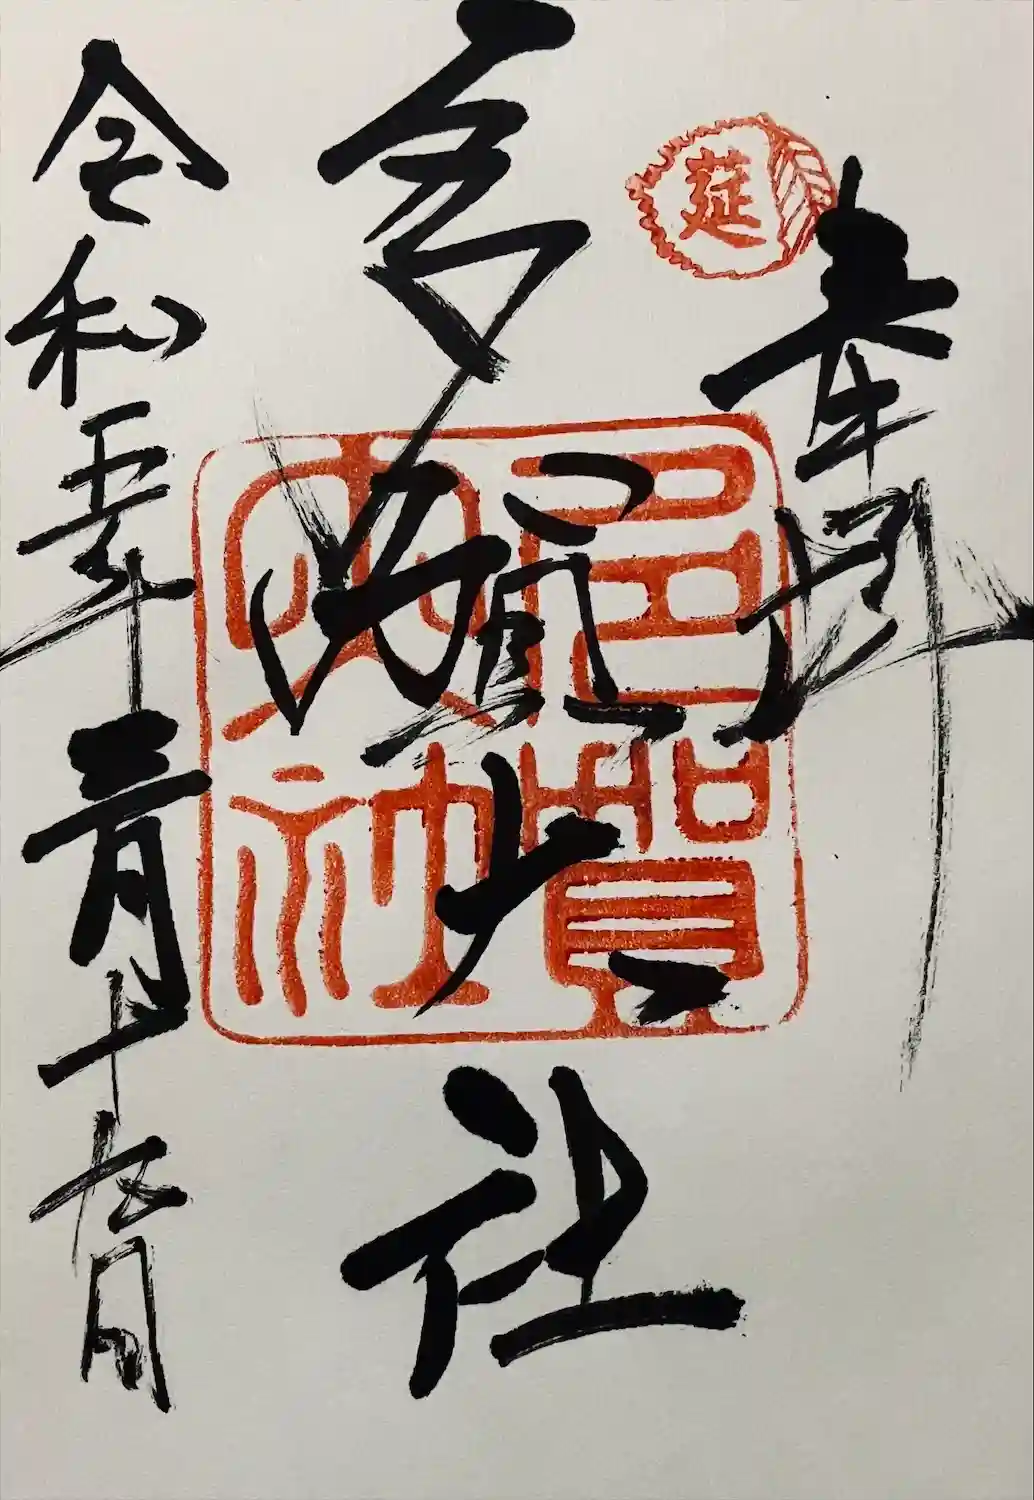 莚
奉拝
多賀大社
多賀
大社
令和五年 月十九日